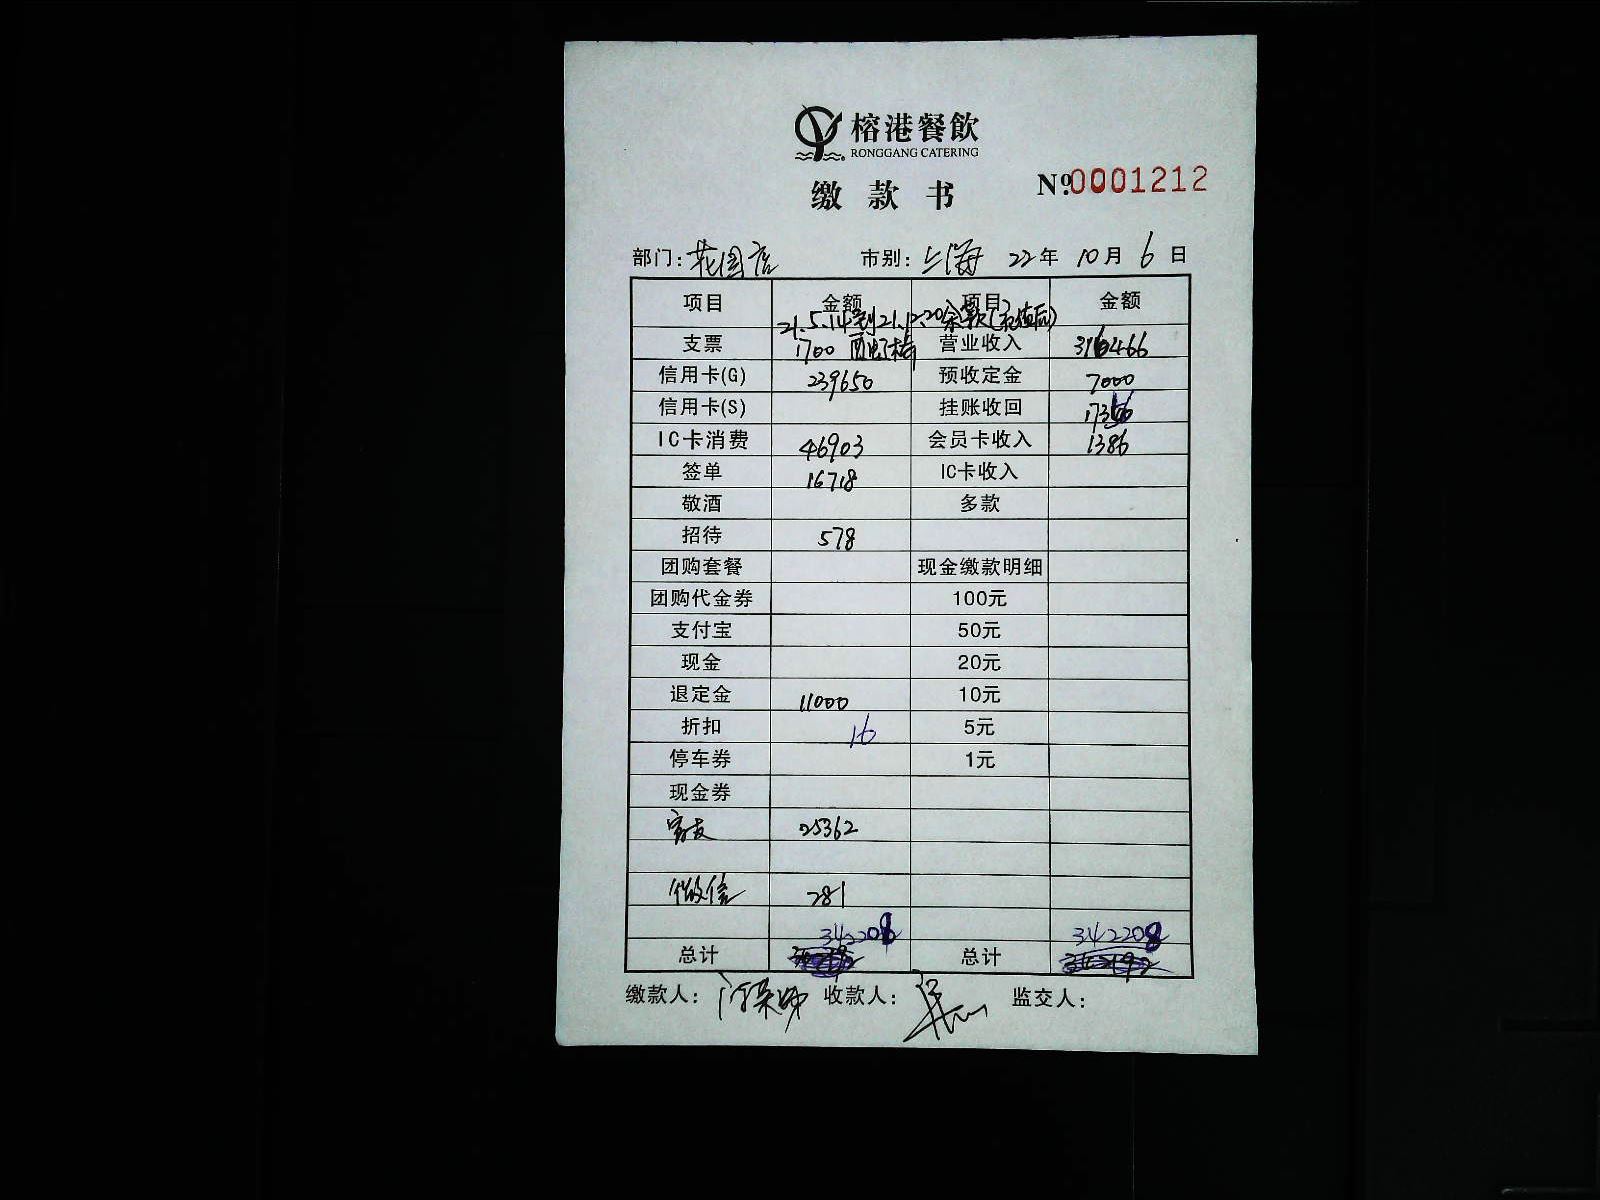 榕港餐飲
RONGGANG CATERING
缴款书
Nº0001212
部门: 花园店 市别: 上海 22年 10月 6日
项目 金额 项目 金额
21.5.14到21.12.20余款
支票 1700 营业收入 316466
信用卡(G) 239650 预收定金 7000
信用卡(S) 挂账收回 17356
IC卡消费 46903 会员卡收入 1386
签单 16718 IC卡收入
敬酒 多款
招待 578
团购套餐 现金缴款明细
团购代金券 100元
支付宝 50元
现金 20元
退定金 11000 10元
折扣 16 5元
停车券 1元
现金券
25362
微信 281
342208 342208
总计 总计
缴款人: 收款人: 监交人: